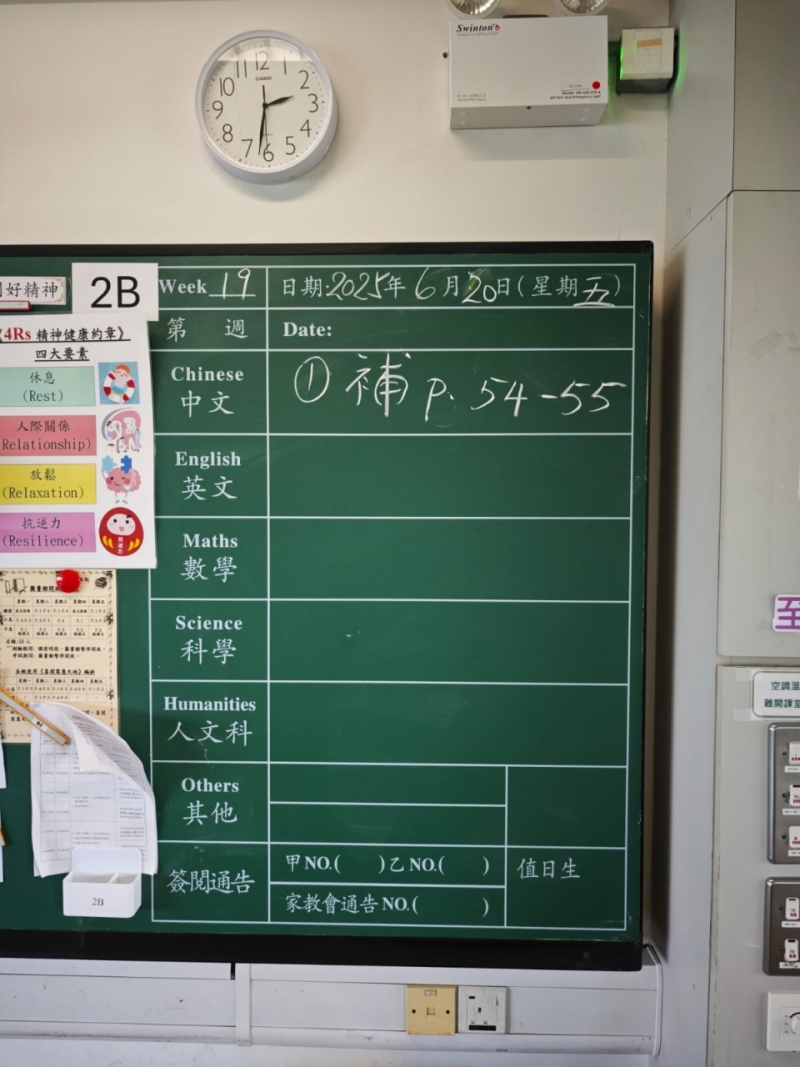 12
1
2
3
4
5
6
7
8
9
10
11
CASIO
Swinton
好精神
2B
Week 19
日期:2025年 6月20日(星期五)
第 週
Date:
《4Rs 精神健康約章》
四大要素
休息
(Rest)
人際關係
(Relationship)
放鬆
(Relaxation)
抗逆力
(Resilience)
Chinese
中文
① 補 p. 54-55
English
英文
Maths
數學
Science
科學
Humanities
人文科
Others
其他
簽閱通告
甲NO.( )乙NO.( )
家教會通告NO.( )
值日生
2B
至
空調溫
離開課室